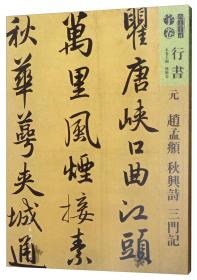 行書
元 趙孟頫 秋興詩 三門記
瞿唐峽口曲江頭
萬里風煙接素
秋華萼夾城通